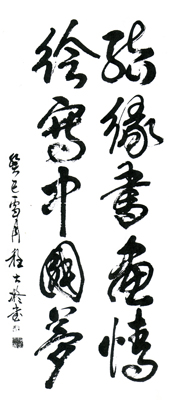 结缘书画情
绘写中国梦
癸巳雪月程大於书